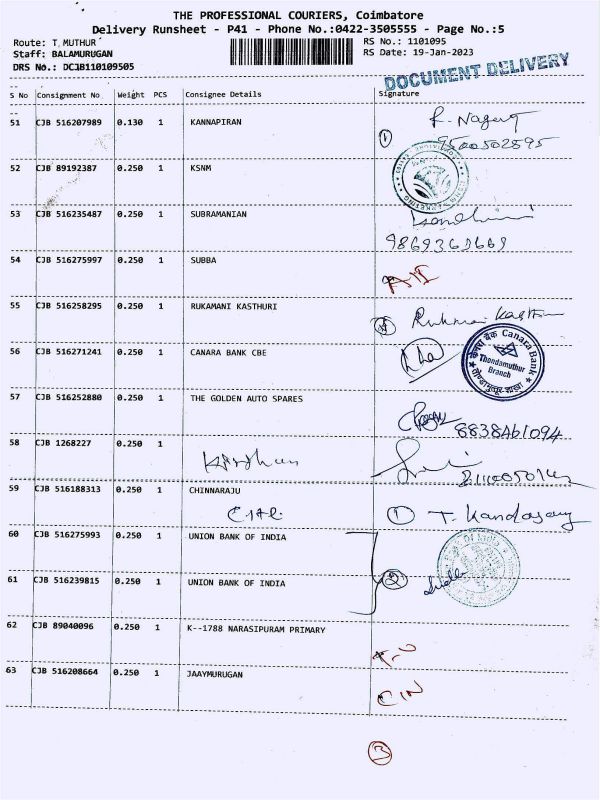 THE PROFESSIONAL COURIERS, Coimbatore
Delivery Runsheet - P41 - Phone No.:0422-3505555 - Page No.:5
Route: T MUTHUR
RS No.: 1101095
Staff: BALAMURUGAN
RS Date: 19-Jan-2023
DRS No.: DCJB110109505
DOCUMENT DELIVERY
S No Consignment No Weight PCS Consignee Details Signature
51 CJB 516207989 0.130 1 KANNAPIRAN
① 9500502895
52 CJB 89192387 0.250 1 KSNM
53 CJB 516235487 0.250 1 SUBRAMANIAN
9869363669
54 CJB 516275997 0.250 1 SUBBA
55 CJB 516258295 0.250 1 RUKAMANI KASTHURI
56 CJB 516271241 0.250 1 CANARA BANK CBE
केनरा बैंक Canara Bank
Thondamuthur
Branch
57 CJB 516252880 0.250 1 THE GOLDEN AUTO SPARES
8838461094
58 CJB 1268227 0.250 1
59 CJB 516188313 0.250 1 CHINNARAJU
① T. Kandasamy
60 CJB 516275993 0.250 1 UNION BANK OF INDIA
61 CJB 516239815 0.250 1 UNION BANK OF INDIA
②
62 CJB 89040096 0.250 1 K--1788 NARASIPURAM PRIMARY
63 CJB 516208664 0.250 1 JAAYMURUGAN
③